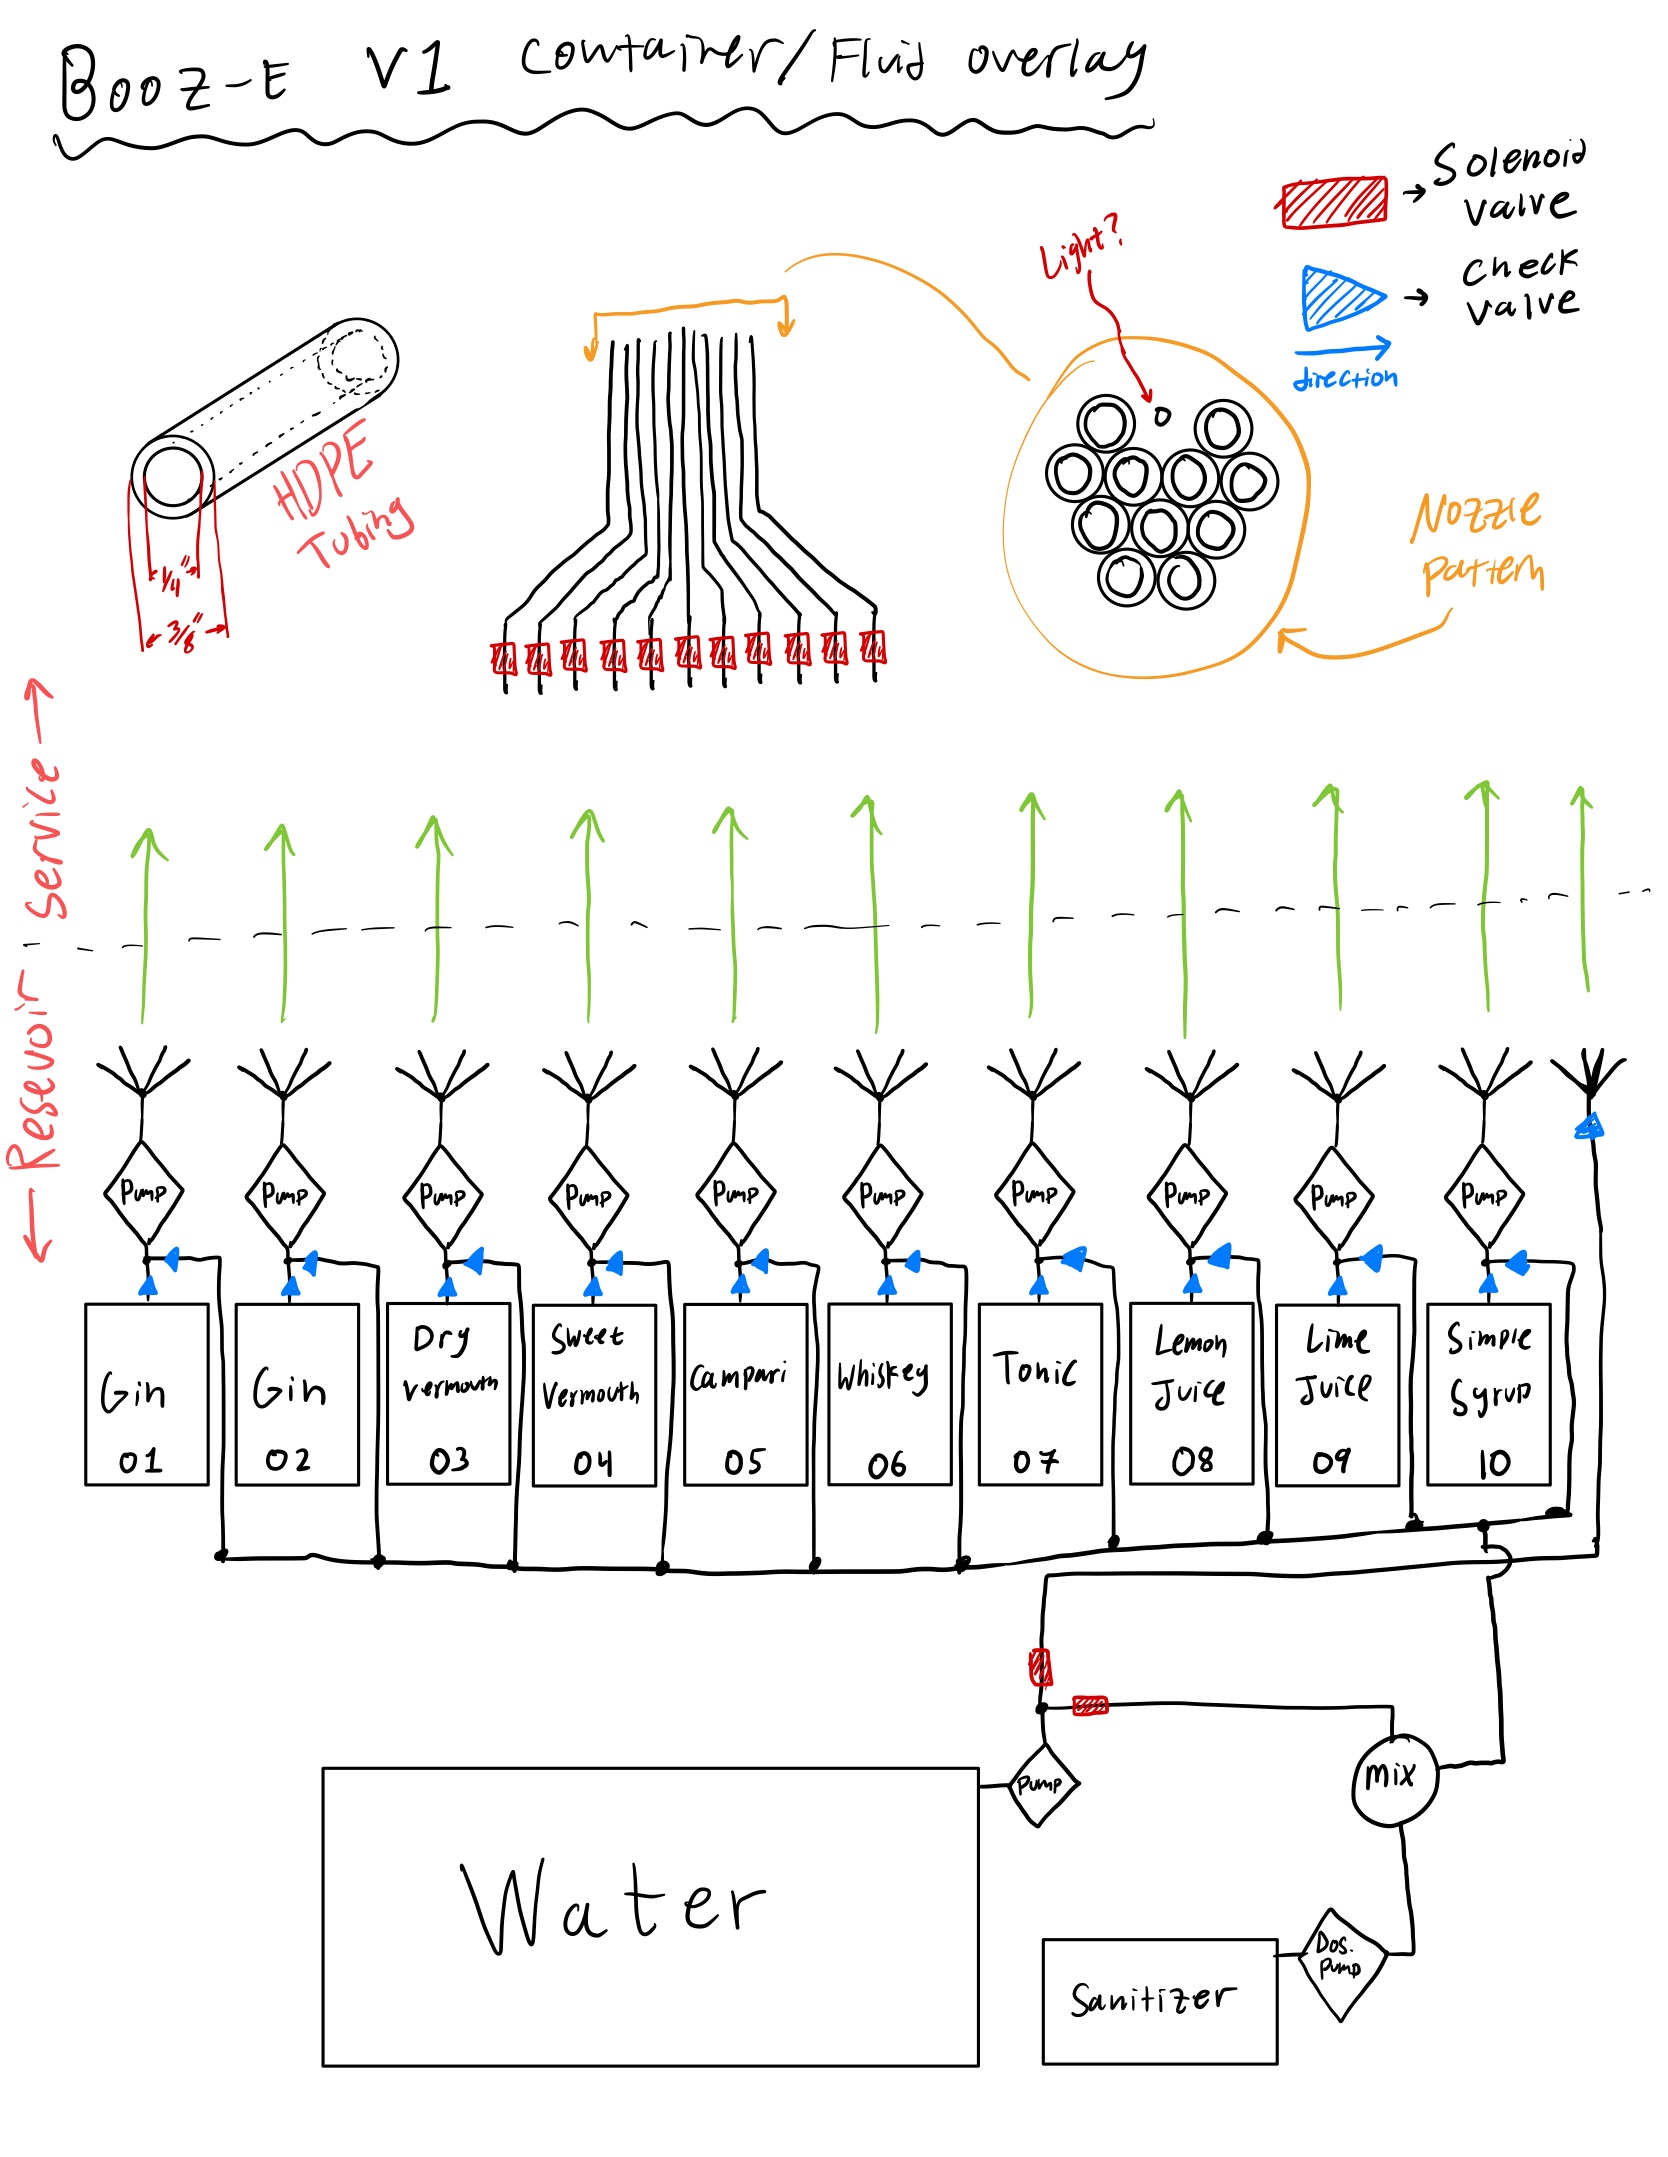 Booz-E V1 Container/Fluid overlay
Solenoid
valve
check
valve
direction
Light?
HDPE
Tubing
1/4"
3/8"
Nozzle
pattern
← Resevoir Service →
Pump Pump Pump Pump Pump Pump Pump Pump Pump Pump
Gin
01
Gin
02
Dry
Vermouth
03
Sweet
Vermouth
04
Campari
05
Whiskey
06
Tonic
07
Lemon
Juice
08
Lime
Juice
09
Simple
Syrup
10
Pump
mix
Water
Dos.
Pump
Sanitizer